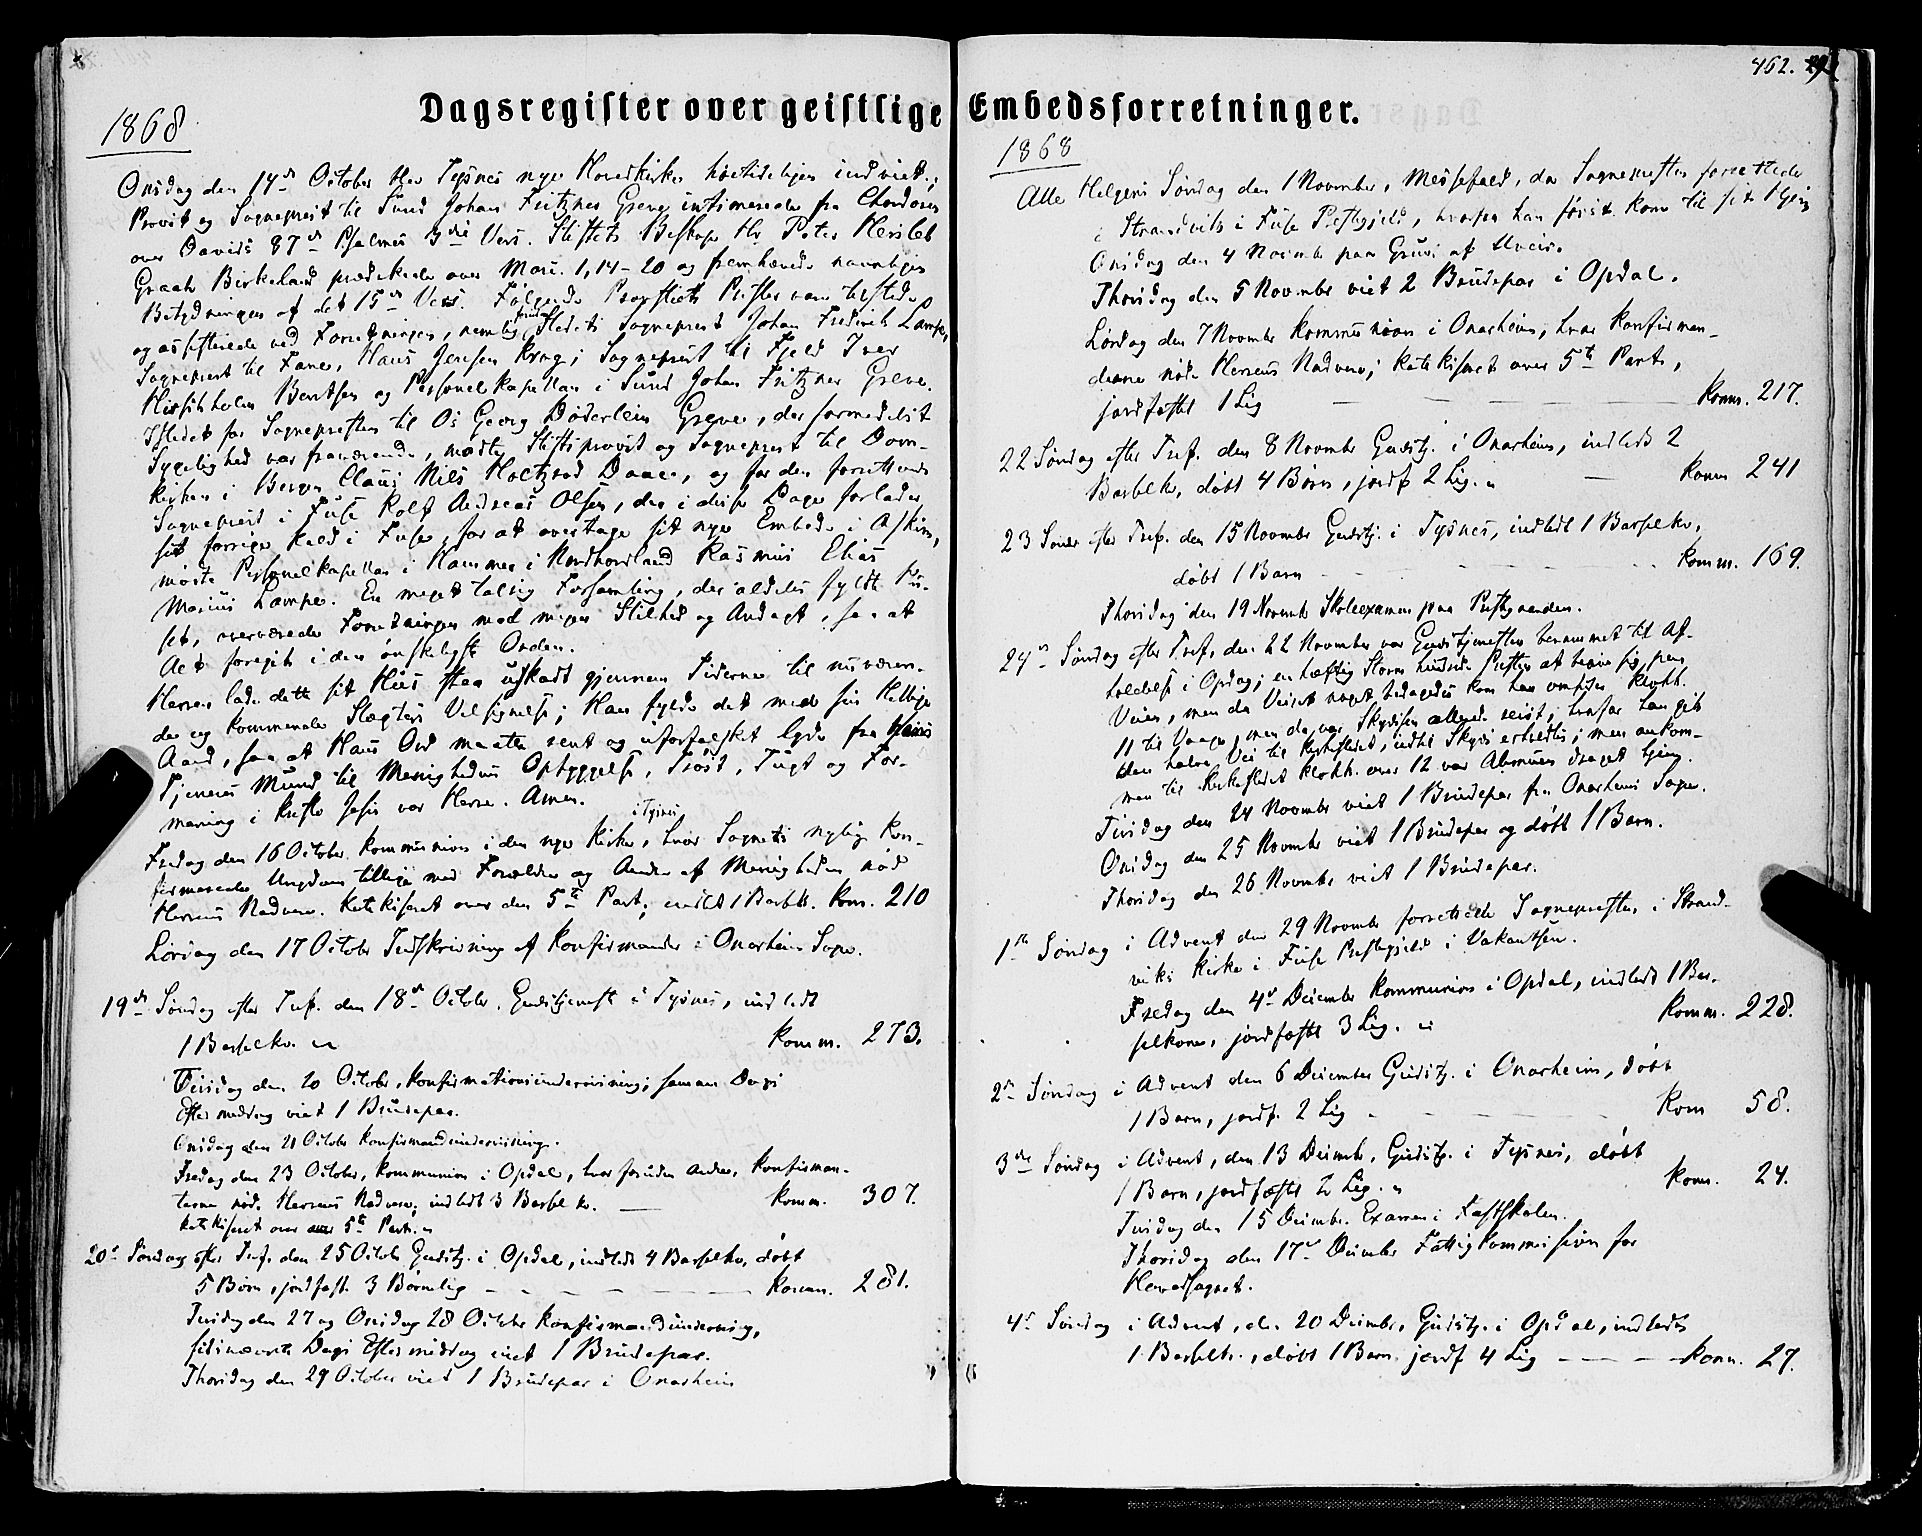 462.
Dagsregister over geistlige Embedsforretninger.
1868
Onsdag den 14de October blev Tysnes nye Hovedkirke høitideligen indviet;
Provst og Sognepræst til Sund Johan Fritzner Greve intimerede fra Chordøren
over Davids 87de Psalmes 3die Vers. Stiftets Biskop Hr Peter Hersleb
Graah Birkeland prædikede over Marc. 1,14-20 og fremhævede navnligen
Betydningen af det 15de Vers. Følgende Provstiets Præster vare tilstede
og assisterede ved Forretningen, nemlig Stedets Sognepræst Johan Frederik Lampe,
Sognepræst til Fane, Hans Jensen Krog; Sognepræst til Fjeld Iver
Hirschholm Berntsen og Personelkapellan i Sund Johan Fritzner Greve.
Istedet for Sognepræsten til Os Georg Døderlein Greve, der formedelst
Sygelighed var fraværende, mødte Stiftsprovst og Sognepræst til Dom-
kirken i Bergen Claus Nils Holtzrod Daae, og for den forrettende
Sognepræst i Fuse Rolf Andreas Olsen, der i disse Dage forlader
sit forrige Kald i Fuse, for at overtage sit nye Embede i Askim,
mødte Personelkapellan i Hammer i Nordhordland Rasmus Elias
Marius Lampe. En meget talrig Forsamling, der aldeles fyldte Hu-
set, overværede Forretningen med megen Stilhed og Andagt, saa at
Alt foregik i den ønskeligste Orden.
Herren lade dette sit Huus staa uskadt gjennem Tiderne til nuværen-
de og kommende Slægters Velsignelse; Han fylde det med sin Hellige
Aand, saa at Hans Ord maatte rent og uforfalsket lyde fra Hans
Tjeneres Mund til Menighedens Opbyggelse, Trøst, Tugt og For-
maning i Kristo Jesu vor Herre. Amen.
i Tysnes
Fredag den 16 October Kommunion i den nye Kirke, hvor Sognets nylig kon-
firmerede Ungdom tillige med Forældre og Andre af Menigheden nød
Herrens Nadvere. Katekiseret over den 5te Part; indledt 1 Barselk. Kom. 210
Lørdag den 17 October Indskrivning af Konfirmander i Onarheims Sogn.
19de Søndag efter Tref. den 18de October. Gudstjeneste i Tysnes, indledt
1 Barselko. Komm. 273.
Tirsdag den 20 October, Konfirmationsundervisning; samme Dags
Eftermiddag viet 1 Brudepar.
Onsdag den 21 October Konfirmandundervisning.
Fredag den 23 October, Kommunion i Opdal, hvor foruden Andre, Konfirman-
terne nød Herrens Nadvere, indledt 3 Barselko. Komm. 307.
Katekiseret over 5te Part.
20de Søndag efter Tref. den 25 Octobr Gudstj. i Opdal, indledt 4 Barselko, døbt
5 Børn, jordfæst. 3 Børnelig Komm. 281.
Tirsdag den 27 og Onsdag 28 October Konfirmandunderving,
sidstnævnte Dags Eftermiddag viet 1 Brudepar.
Thorsdag den 29 October viet 1 Brudepar i Onarheim
1868
Alle Helgens Søndag den 1 November, Messefald, da Sognepræsten forrettede
i Strandvik i Fuse Præstegjeld, hvorfra han først kom til sit Hjem
Onsdag den 4 Novembr paa Grund af Uveir.
Thorsdag den 5 Novembr viet 2 Brudepar i Opdal.
Lørdag den 7 Novembr Kommunion i Onarheim, hvor Konfirman-
derne nøde Herrens Nadvere; Katekiseret over 5te Part,
jordfæstet 1 Lig Komm. 217.
22 Søndag efter Tref. den 8 Novembr Gudstj. i Onarheim, indledt 2
Barselko, døbt 4 Børn, jordf 2 Lig. Komm 241
23 Søndag efter Tref. den 15 Novembr Gudstj. i Tysnes, indledt 1 Barselko,
døbt 1 Barn Komm. 169.
Thorsdag den 19 Novembr Skoleexamen paa Præstgaarden.
24de Søndag efter Tref. den 22 November var Gudstjenesten berammet til Af-
holdelse i Opdal; en hæftig Storm hindrede Præsten at begive sig paa
Veien, men da Veiret noget bedagedes kom han omtrent Klokk.
11 til Vaage, men da var Skydsen allerede reist; hvorfor han gik
den halve Vei til Kirkestedet, indtil Skyds erholdtes; men ankom-
men til Kirkestedet Klokk. over 12 var Almuen draget hjem.
Tirsdag den 24 Novembr viet 1 Brudepar fra Onarheims Sogn.
Onsdag den 25 Novembr viet 1 Brudepar og døbt 1 Barn.
Thorsdag den 26 Novembr viet 1 Brudepar.
1ste Søndag i Advent den 29 Novembr forrettede Sognepræsten i Strand-
viks Kirke i Fuse Præstegjeld i Vakantsen.
Fredag den 4de December Kommunion i Opdal, indledt 1 Bar-
selkone, jordfæstet 3 Lig. Komm. 228.
2den Søndag i Advent den 6 December Gudstj. i Onarheim, døbt
1 Barn, jordf. 2 Lig Kom 58.
3die Søndag i Advent, den 13 Decembr, Gudstj. i Tysnes, døbt
1 Barn, jordfæstet 2 Lig. Kom. 24.
Tirsdag den 15 Decembr. Examen i Fastskolen.
Thorsdag den 17de Decembr Fattigkommission for
Hovedsognet.
4de Søndag i Advent, den 20 Decembr, Gudstj. i Opdal, indledt
1 Barselk., døbt 1 Barn, jordf 4 Lig Komm. 27.